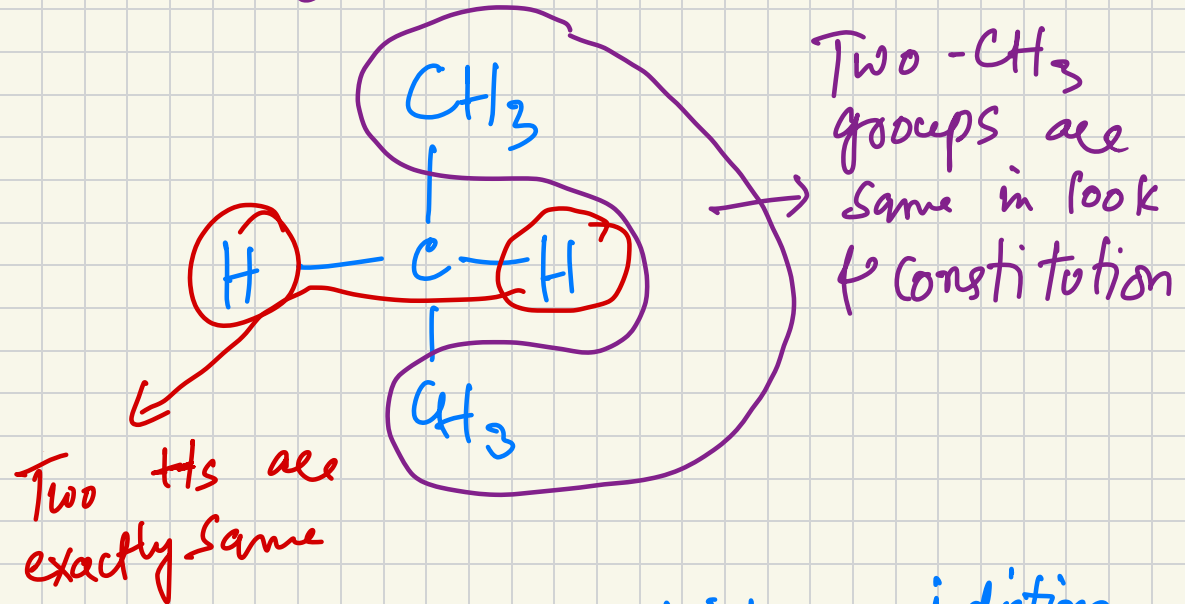 CH3
C
H
H
CH3
Two -CH3
groups are
same in look
& constitution
Two Hs are
exactly same